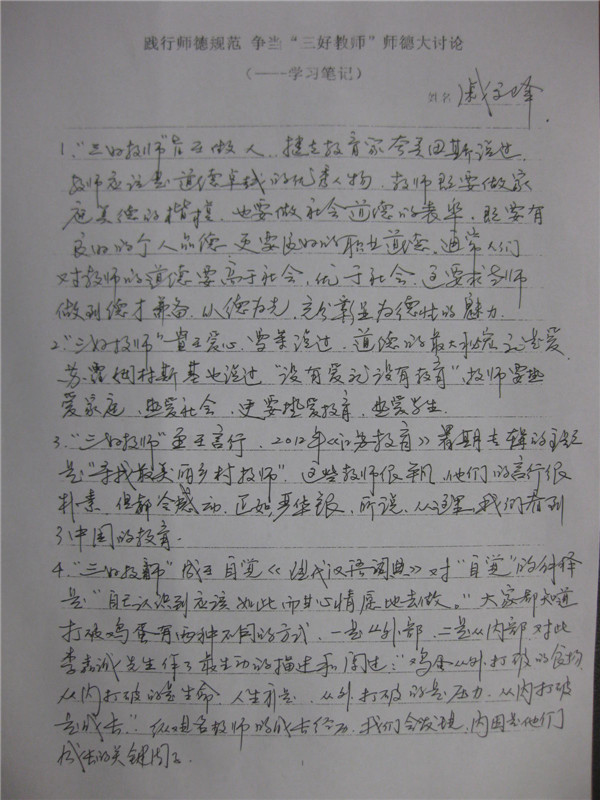 践行师德规范 争当“三好教师”师德大讨论
（——学习笔记）
姓名
1.“三好教师”首在做人。捷克教育家夸美纽斯说过
教师应该是道德卓越的优秀人物。教师既要做家
庭美德的楷模，也要做社会道德的表率，既要有
良好的个人品德，更要良好的职业道德。通常人们
对教师的道德要高于社会，优于社会，这要求教师
做到德才兼备，以德为先，充分彰显为德性的魅力.
2.“三好教师”贵在爱心。雪莱说过，道德的最大秘密就是爱.
苏霍姆林斯基也说过“没有爱就没有教育”，教师要热
爱家庭，热爱社会，更要热爱教育，热爱学生.
3.“三好教师”重在言行，2012年《江苏教育》暑期专辑的主题
是“寻找最美丽乡村教师”。这些教师很平凡，他们的言行很
朴素，但都令人感动，正如严华银，所说，从这里，我们看到
了中国的教育.
4.“三好教师”成在自觉《现代汉语词典》对“自觉”的解释
是“自己认识到应该如此而甘心情愿地去做。”大家都知道
打破鸡蛋有两种不同的方式，一是从外部，二是从内部，对此
李嘉诚先生作了最生动的描述和阐述：“鸡蛋从外打破的是食物
从内打破的是生命，人生亦是，从外打破的是压力，从内打破
是成长”。纵观名教师的成长经历，我们会发现，内因是他们
成长的关键因素.